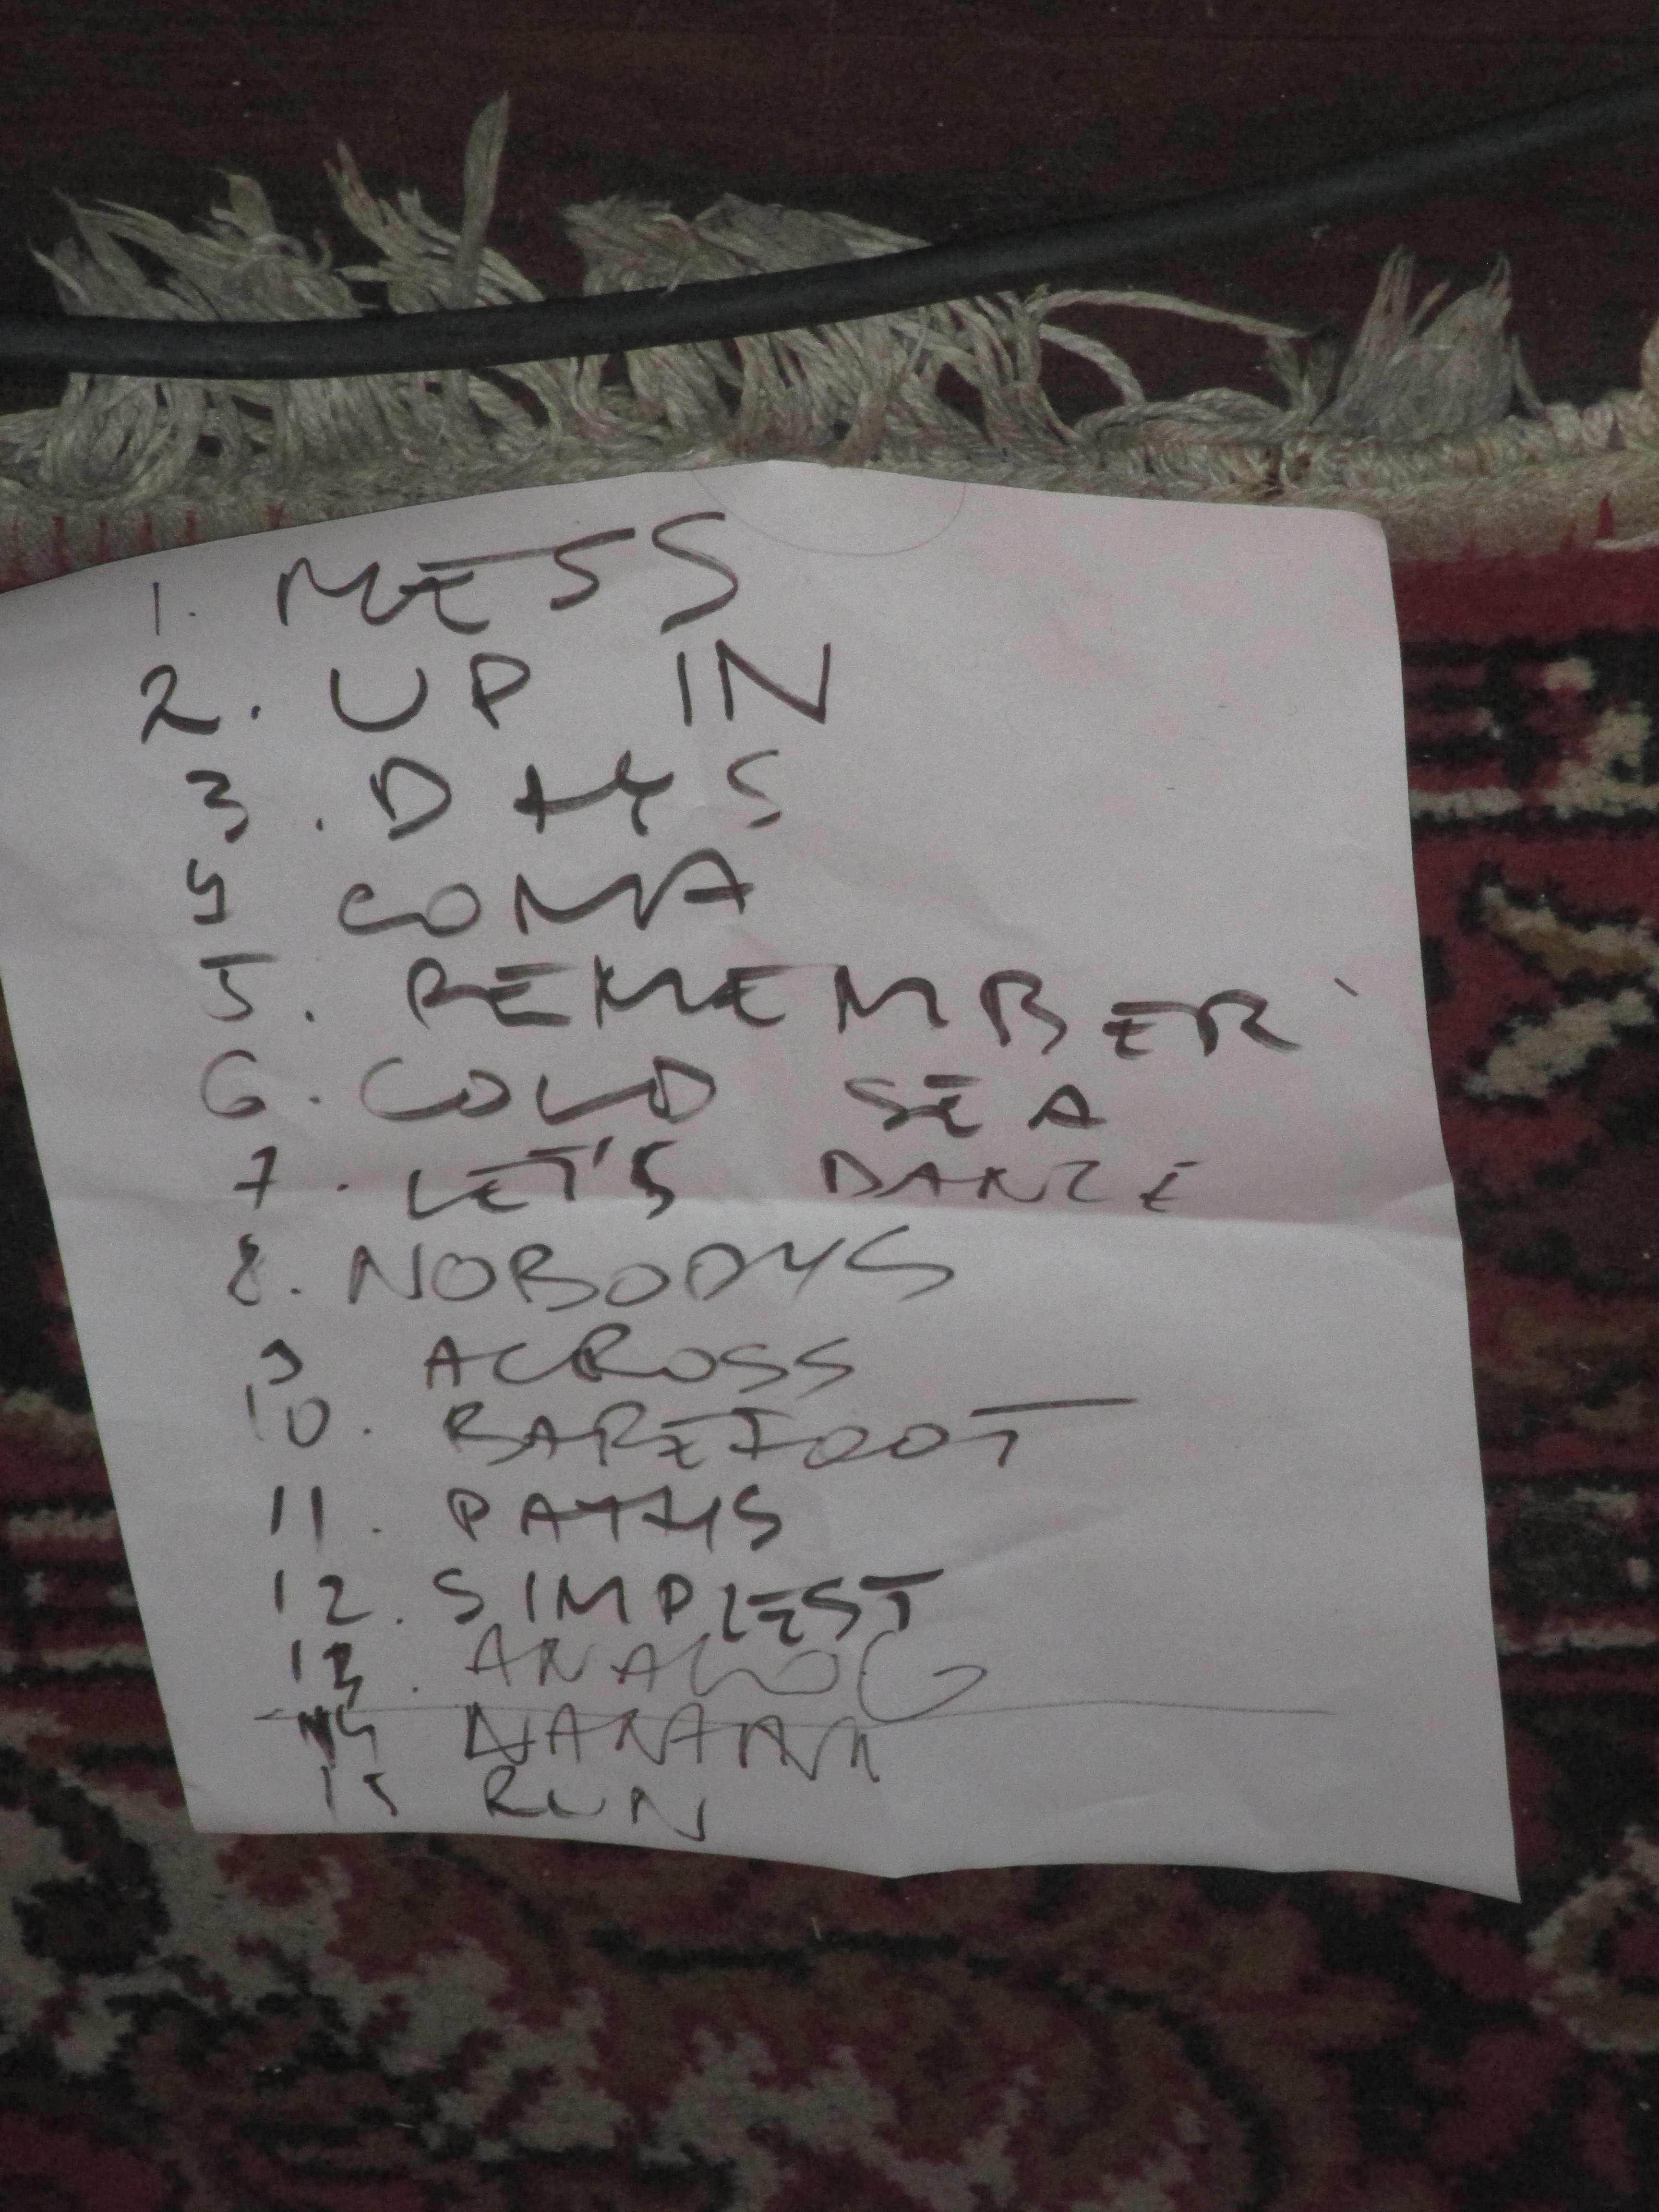 1. MESS
2. UP IN
3. DAYS
4 COMA
5. REMEMBER
6. COLD SEA
7. LET'S DANCE
8. NOBODYS
9 ACROSS
10. BAREFOOT
11. PATHS
12. SIMPLEST
13. ANALOG
14 NANANA
15 RUN